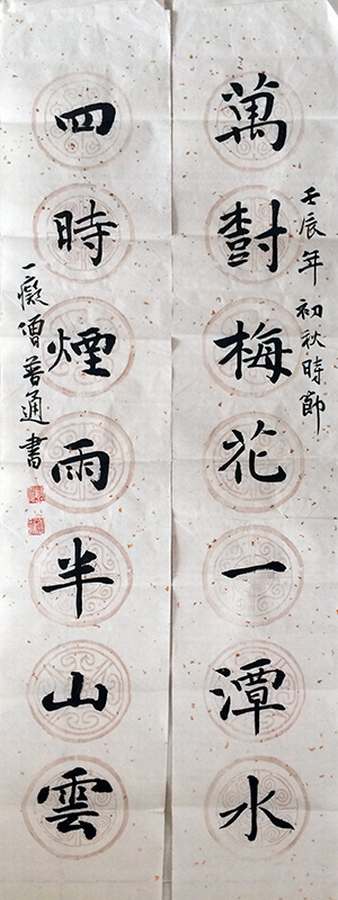 壬辰年初秋時節
萬樹梅花一潭水
四時煙雨半山雲
一癡僧普通書